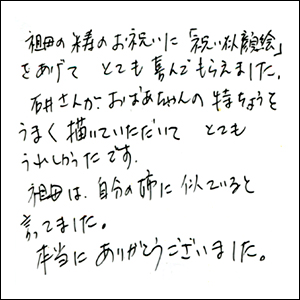 祖母の米寿のお祝いに「祝い似顔絵」
をあげて とても喜んでもらえました。
石井さんが、おばあちゃんの特ちょうを
うまく描いていただいて とても
うれしかったです。
祖母は、自分の姉に似ていると
言ってました。
本当にありがとうございました。